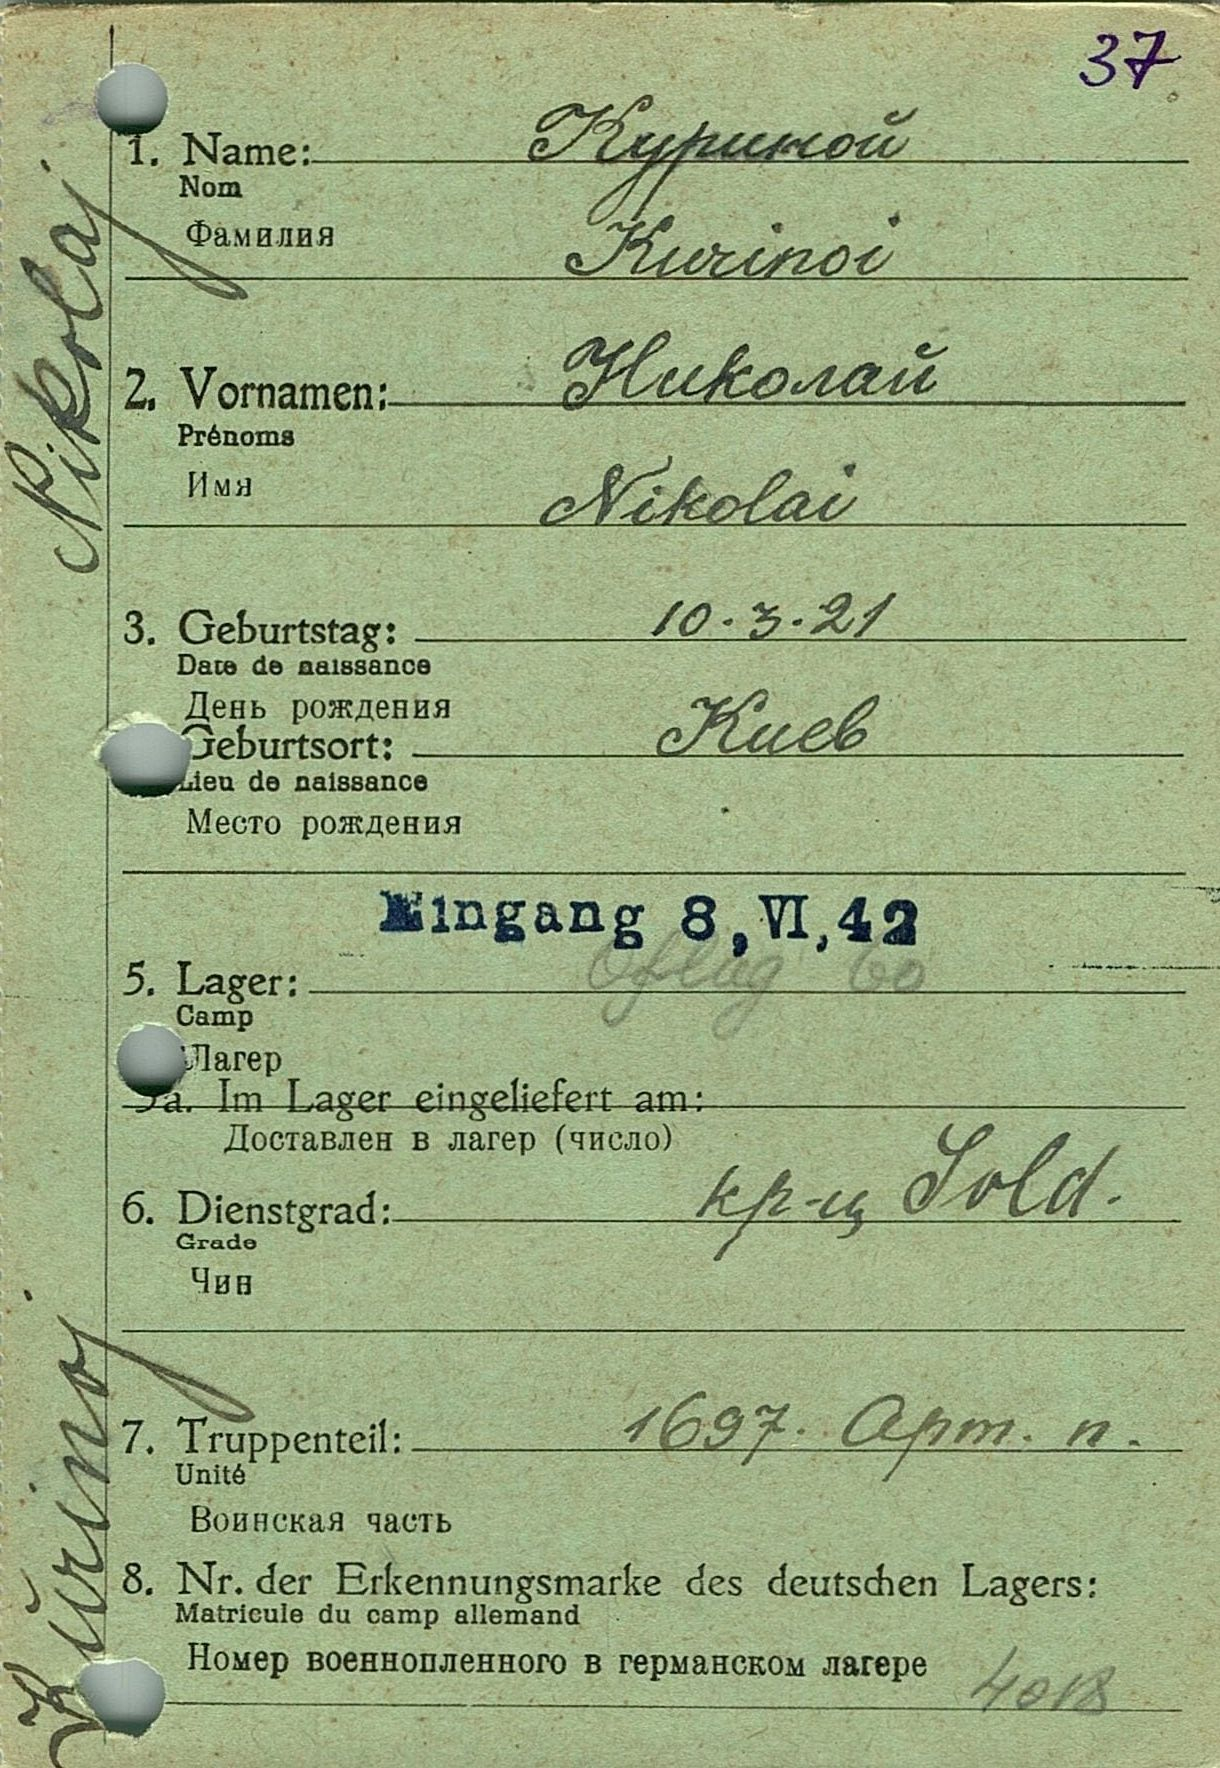 37
1. Name: Куриной
Nom
Фамилия
Kurinoi
2. Vornamen: Николай
Prénoms
Имя
Nikolai
3. Geburtstag: 10.3.21
Date de naissance
День рождения
Geburtsort: Киев
Lieu de naissance
Место рождения
Eingang 8,VI,42
5. Lager: Oflag 60
Camp
Лагер
5a. Im Lager eingeliefert am:
Доставлен в лагер (число)
6. Dienstgrad: кр-ц Sold.
Grade
Чин
7. Truppenteil: 1697. Арт. п.
Unité
Воинская часть
8. Nr. der Erkennungsmarke des deutschen Lagers:
Matricule du camp allemand
Номер военнопленного в германском лагере
Kŭrinoj Nikolaj